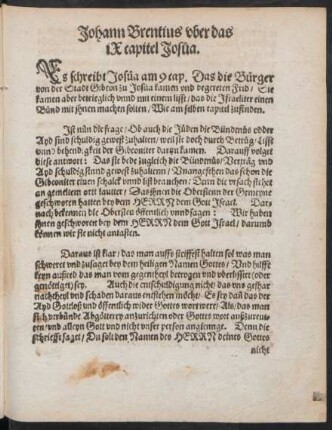 Johann Brentius vber das
IX capitel Josüa.
Es schreibt Josüa am 9 cap. Das die Bürger
von der Stadt Gibeon zu Josüa kamen vnd begereten Frid / Sie
kamen aber betrieglich vnnd mit einem lisst / das die Israeliter einen
Bünd mit jhnen machen solten / Wie am selben capitel zusinden.
Ist nün die frage / Ob auch die Jüden die Bündenüs odder
Ayd sind schuldig gewest zuhalten / weil sie doch durch Betrüg / Lisst
vnn behendigkeit der Gibeoniter darzu kamen. Darauff volget
diese antwort: Das sie beide zugleich die Bündenüs / Vertrag vnd
Ayd schuldig sennd gewest zuhaltenn / Vnangesehen das schon die
Gibeoniter einen schalck vnnd list brauchen / Dann die vrsach stehet
an gemeltem ortt lautter / Das jhnen die Obersten der Gemeyne
geschworen hatten bey dem HERRN dem Gott Israel. Dar
nach bekennen die Obersten öffentlich vnnd sagen: Wir haben
jhnen geschworen bey dem HERRN dem Gott Israel / darumb
können wir sie nicht antasten.
Daraus ist klar / das man auffs steiffest halten sol was man
schweret vnd zusaget bey dem heiligen Namen Gottes / Vnd hilfft
keyn außred das man vom gegentheyl betrogen vnd vberlistet (oder
genötiget) sey. Auch die entschuldigung nicht / das vns gefhar
nachtheyl vnd schaden daraus entstehen möcht / Es sey dañ das der
Ayd Gottloß vnd öffentlich wider Gottes wort were / Als / das man
sich verbünde Abgötterey anzurichten oder Gottes wort außzureut-
ten / vnd alleyn Gott vnd nicht vnser person angienge. Denn die
schrifft saget / Du solt den Namen des HERRN deines Gottes
nicht